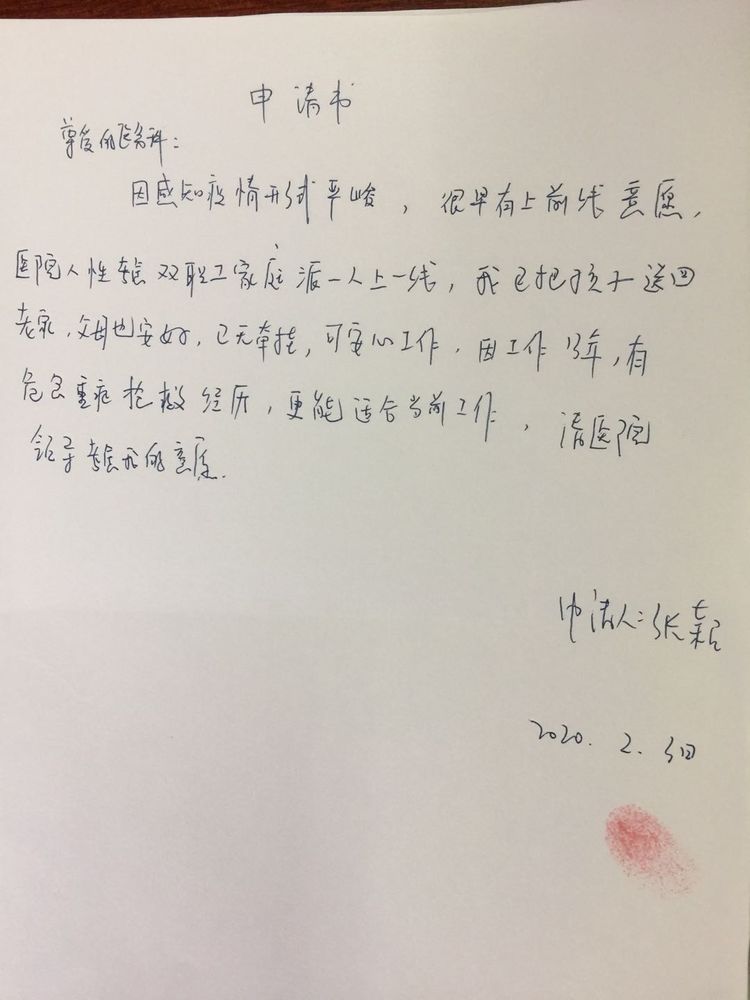 申请书
尊敬的医务科：
因感知疫情形式严峻，很早有上前线意愿，
医院人性考虑双职工家庭派一人上一线，我已把孩子送回
老家，父母也安好，已无牵挂，可安心工作，因工作13年，有
危急重症抢救经历，更能适合当前工作，请医院
领导考虑我的意愿.
申请人：张
2020. 2. 3日